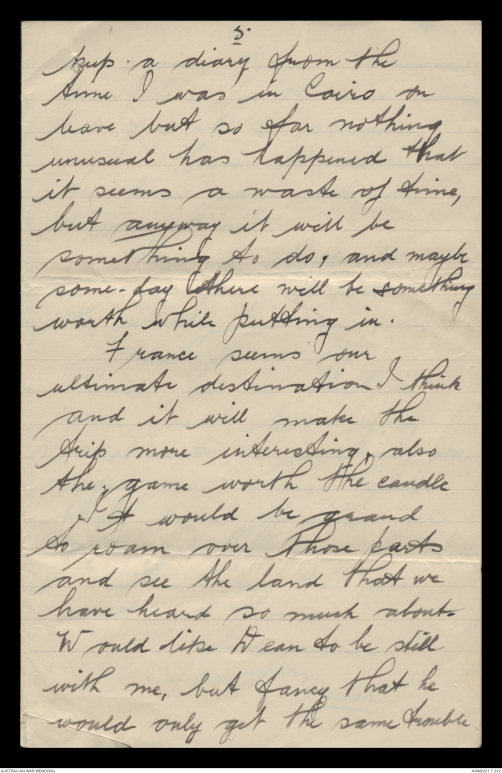 5.
kup a diary from the
time I was in Cairo on
leave but so far nothing
unusual has happened that
it seems a waste of time,
but anyway it will be
something to do, and maybe
some-day there will be something
worth while putting in.
France seems our
ultimate destination I think
and it will make the
trip more interesting, also
the game worth the candle
It would be grand
to roam over those parts
and see the land that we
have heard so much about.
Would like Dean to be still
with me, but fancy that he
would only get the same trouble
AUSTRALIAN WAR MEMORIAL